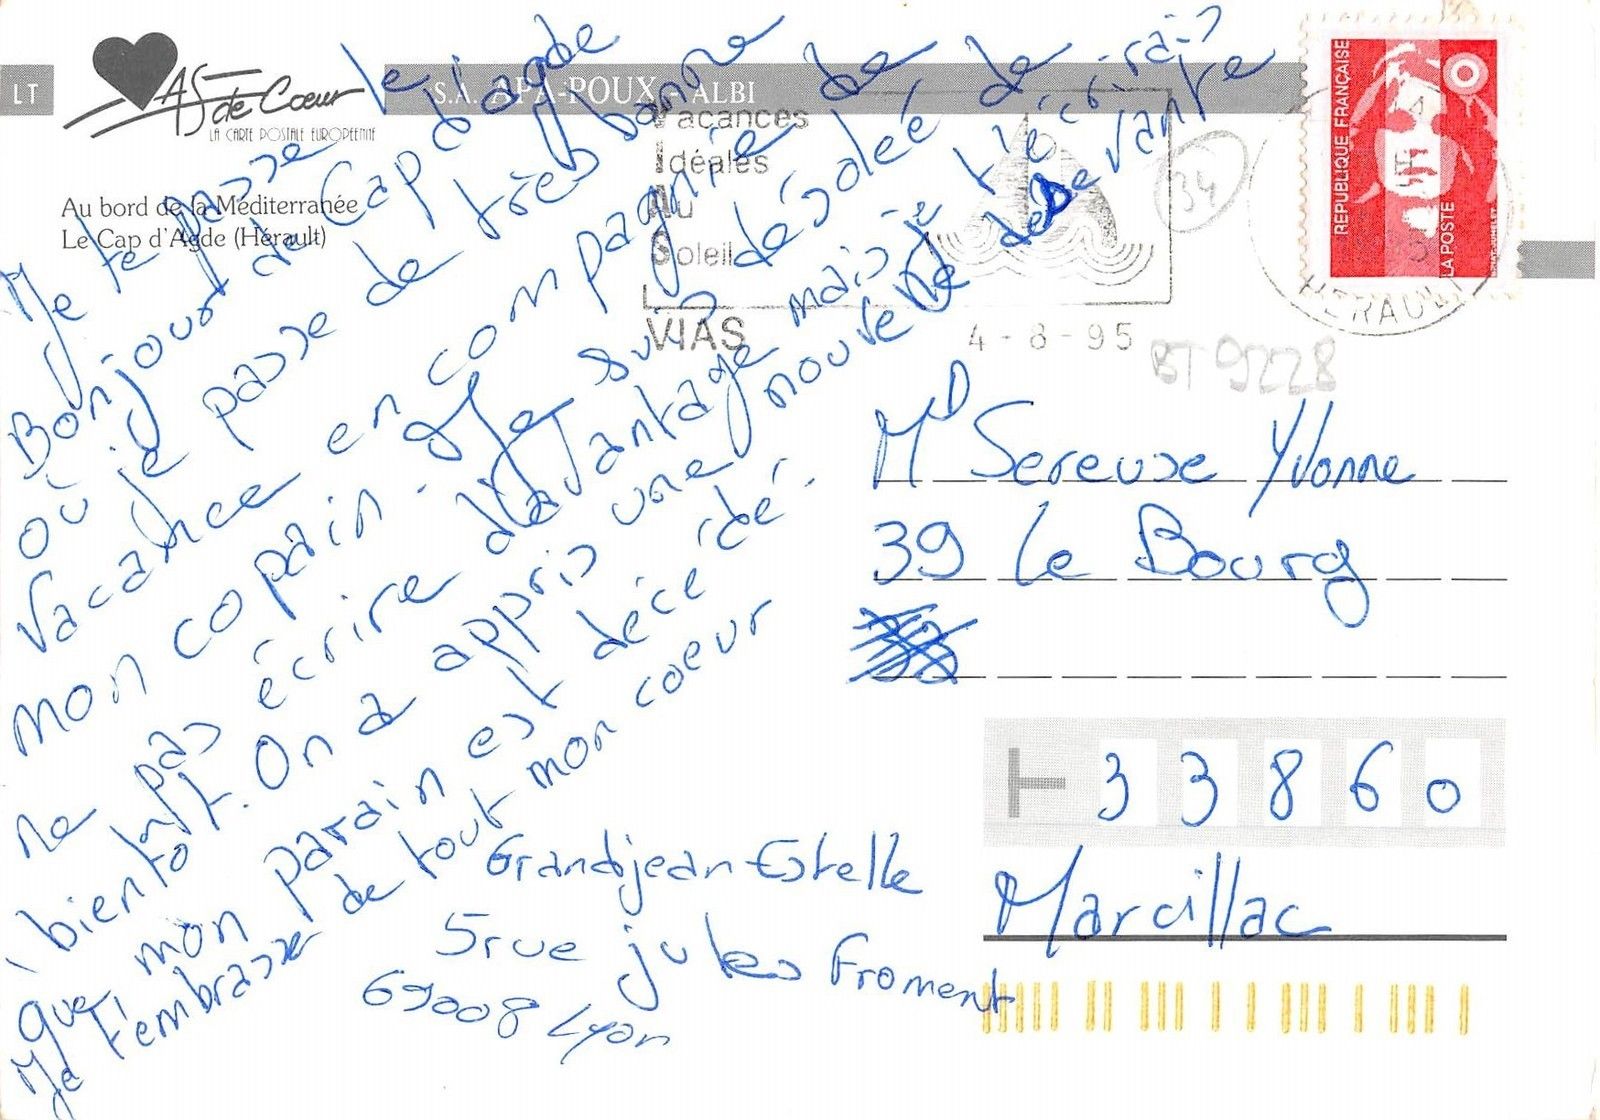 LT
AS de Coeur
LA CARTE POSTALE EUROPEENNE
S.A. APA-POUX - ALBI
Au bord de la Méditerranée
Le Cap d'Agde (Hérault)
Vacances
Idéales
Au
Soleil
VIAS
4-8-95
34
HERAULT
REPUBLIQUE FRANÇAISE
LA POSTE
BT 9228
Je te passe le
Bonjour de Cap d'agde
où je passe de très bonne
vacance en compagnie de
mon copain. Je suis désolée de
ne pas écrire davantage mais je t'écrirais
bientôt. On a appris une nouvelle décevante
que mon parain est décécidé.
Je t'embrasse de tout mon coeur
Grandjean Estelle
5 rue jules Froment
69008 Lyon
MD Sereuse Yvonne
39 le Bourg
33860
Marcillac